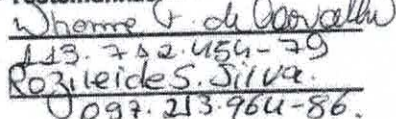 Jhonne F. de Carvalho
113.742.454-79
Rozileide S. Silva.
097.213.964-86.